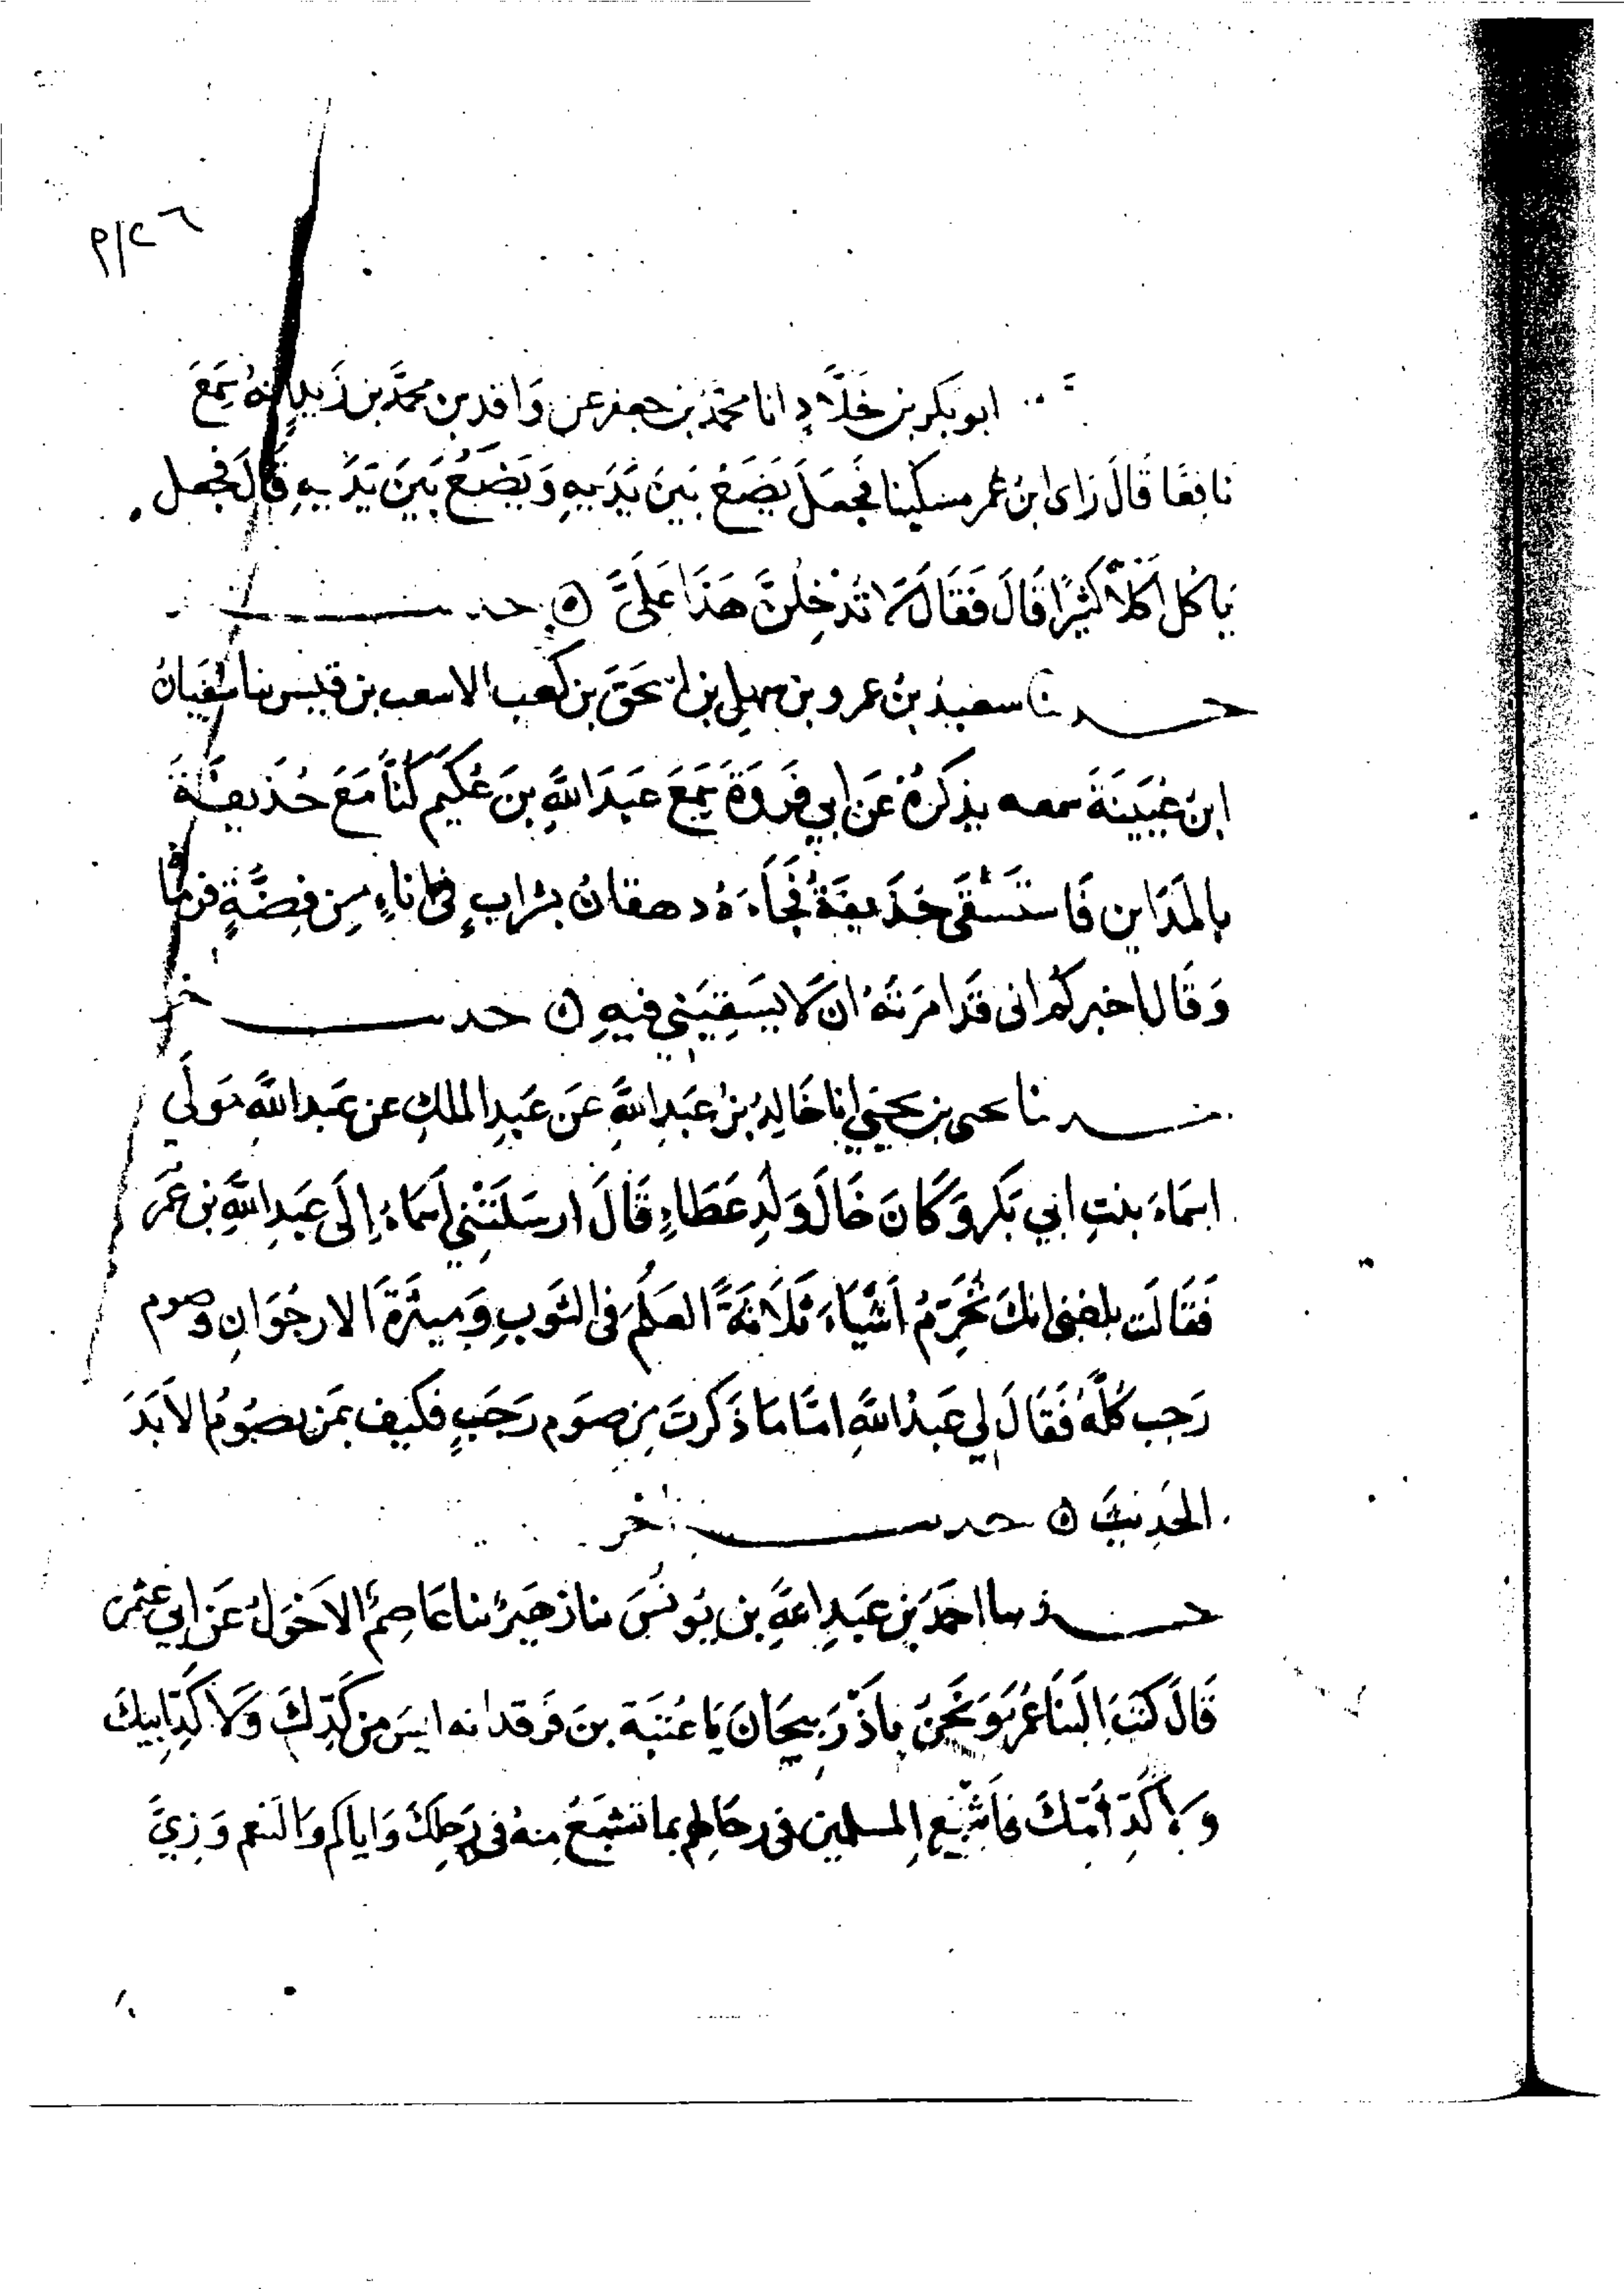 ٩/٢٦
ابو بكر بن خَلَّادٍ انا محمَّدُ بن جعفر عن وَاقد بن محمَّد بن زَيدٍ انهُ سَمِعَ
نافِعًا قَالَ رَاى ابنُ عُمر مسكينا فجَعَلَ يَضَعُ بَينَ يَدَيهِ وَيَضَعُ بَينَ يَدَيهِ قَالَ فجعل
يَاكل اَكلاً كثيرًا قَالَ فَقَالَ لَا تُدْخِلَنَّ هَذَا عَلَيَّ ٥ حد
حدثنا سعيدُ بنُ عمرو بن سهل بن اسحَق بن كعب الاسعب بن قيس نا سُفيَانُ
ابنُ عُيَينَةَ سمعه يذكرُهُ عَن ابي فَروَةَ سَمِعَ عَبدَ اللَّهِ بنَ عُكَيم كُنَّا مَعَ حُذَيفَةَ
بالمَدَاين فَاستَسْقَى حُذَيفَةُ فَجَاءَهُ دهقانُ بشرابٍ في اناءٍ مِن فِضَّةٍ فرما
وَقَالَ اخبركم اني قَد امَرتهُ ان لَا يَسقِيَني فيهِ ٥ حد اخر
حدثنا يحيى بن يحيَى انا خَالِدُ بنُ عَبدِ اللَّهِ عَن عَبدِ الملكِ عن عَبد اللَّهِ مَولَى
اسمَاءَ بنتِ ابي بَكر وَكَانَ خَالَ وَلَدِ عَطَاءٍ قَالَ ارسَلَتْني اَسمَاءُ إِلَى عَبدِ اللَّهِ بن عُمَر
فَقَالَت بلغني انكَ تُحَرِّمُ اَشيَاءَ ثَلَاثَةً العَلَمَ في الثَوبِ وَمِيثَرَةَ الارجُوَانِ وصوم
رَجب كُلَّهُ فَقَالَ لي عَبدُ اللَّهِ امَّا مَا ذَكَرتَ مِن صَوم رَجَبٍ فكيف بمَن يصُومُ الاَبَدَ
الحَدِيثَ ٥ حد اخر
حدثنا احمَدُ بن عَبدِ اللهِ بن يُونُسَ نا زهَيرٌ نا عَاصِمٌ الاَحوَلُ عَن ابي عثمن
قَالَ كَتَبَ الَينَا عُمَرُ وَنَحنُ باَذْرَبيجَانَ يَا عُتبَة بنَ فَرقد انه ليسَ مِن كَدِّكَ وَلَا كَدِّ ابيكَ
وَلَا كَدِّ اُمِّكَ فَاَشبعِ المسلمين في رحَالِهم بما تشبَعُ مِنهُ في رَحلِكَ وَاياكم وَالتَنعم وَزِيَّ